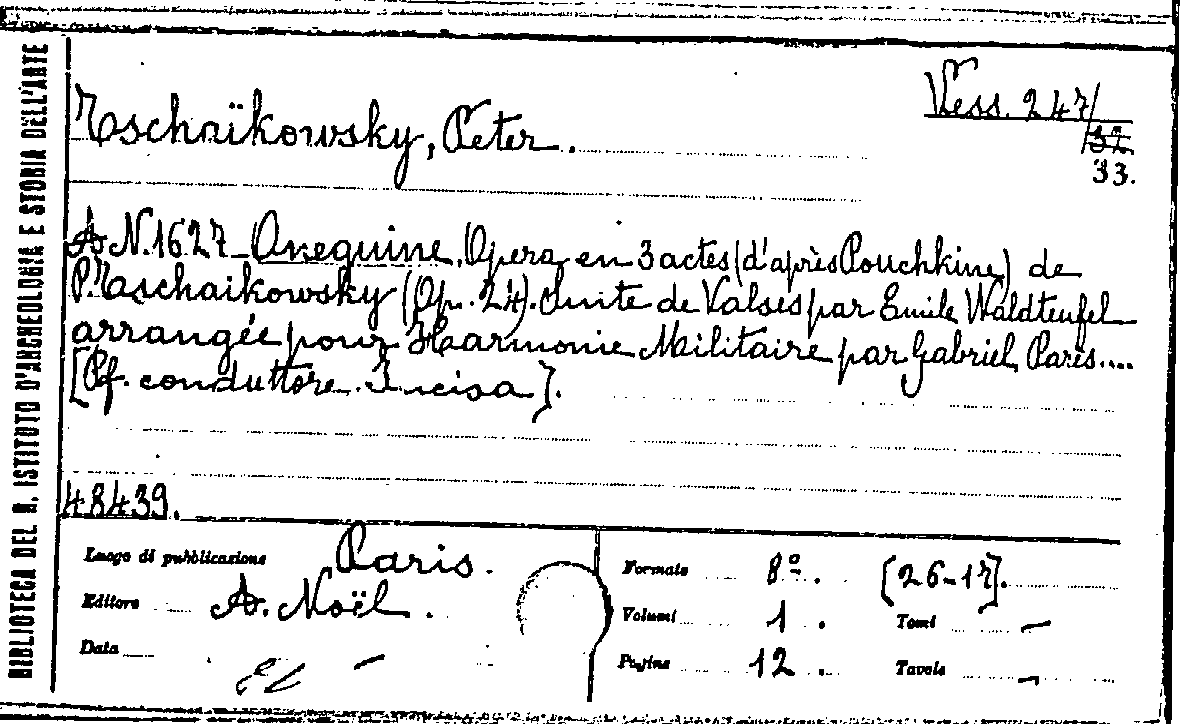 BIBLIOTECA DEL R. ISTITUTO D'ARCHEOLOGIA E STORIA DELL'ARTE
Vess. 247/
32.
33.
Tschaïkowsky, Peter.
A. N. 1627_ Oneguine. Opera en 3 actes (d'après Pouchkine) de
P. Tschaikowsky (Op. 24). Suite de Valses par Emile Waldteufel
arrangée pour Harmonie Militaire par Gabriel Parès....
[Pf. conduttore. Incisa].
48439.
Luogo di pubblicazione Paris.
Editore A. Noël.
Data —
Formato 8º. [26-17].
Volumi 1. Tomi —
Pagine 12. Tavole —